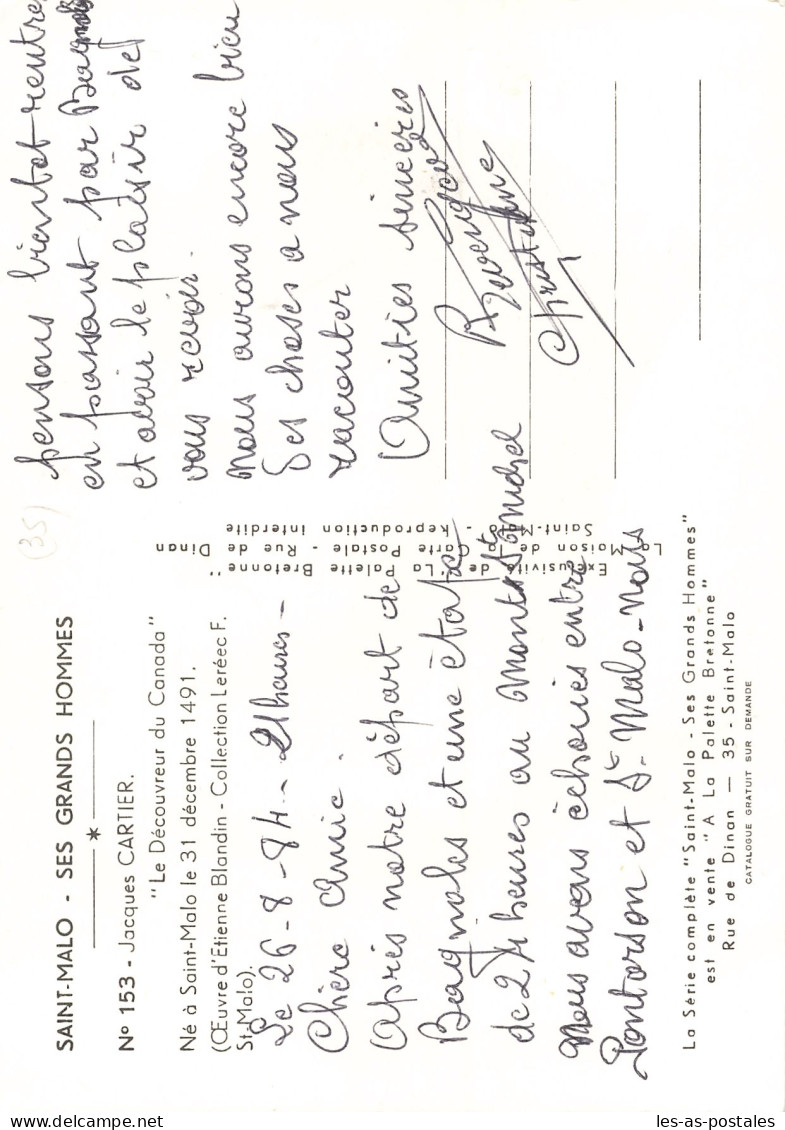 SAINT-MALO - SES GRANDS HOMMES
*
N° 153 - Jacques CARTIER.
"Le Découvreur du Canada"
Né à Saint-Malo le 31 décembre 1491.
(Œuvre d'Etienne Blandin - Collection Leréec F.
St-Malo).
Le 26-8-84 - 21 heures -
Chère Amie.
Après notre départ de
Bagnoles et une étape
de 24 heures au Mont St Michel
Nous avons échoués entre
Pontorson et St Malo - Nous
pensons bientot rentrer
en passant par Bagnoles
et avoir le plaisir de
vous revoir.
Nous aurons encore bien
des choses a nous
raconter
Amitiés sincères
Christiane
Exclusivité de "La Palette Bretonne"
La Maison de la Carte Postale - Rue de Dinan
Saint-Malo - Reproduction interdite
La Série complète "Saint-Malo - Ses Grands Hommes"
est en vente "A La Palette Bretonne"
Rue de Dinan — 35 - Saint-Malo
CATALOGUE GRATUIT SUR DEMANDE
(35)
les-as-postales